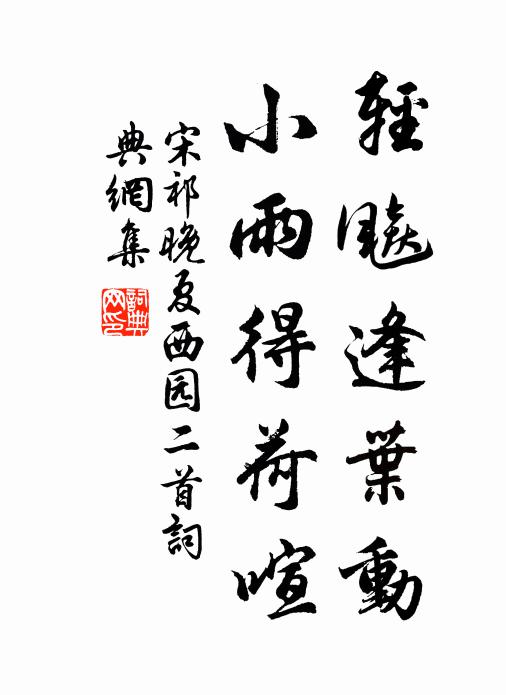 輕飈逢葉動
小雨得荷喧
宋祁晚夏西园二首詞
典網集
詞典
网印